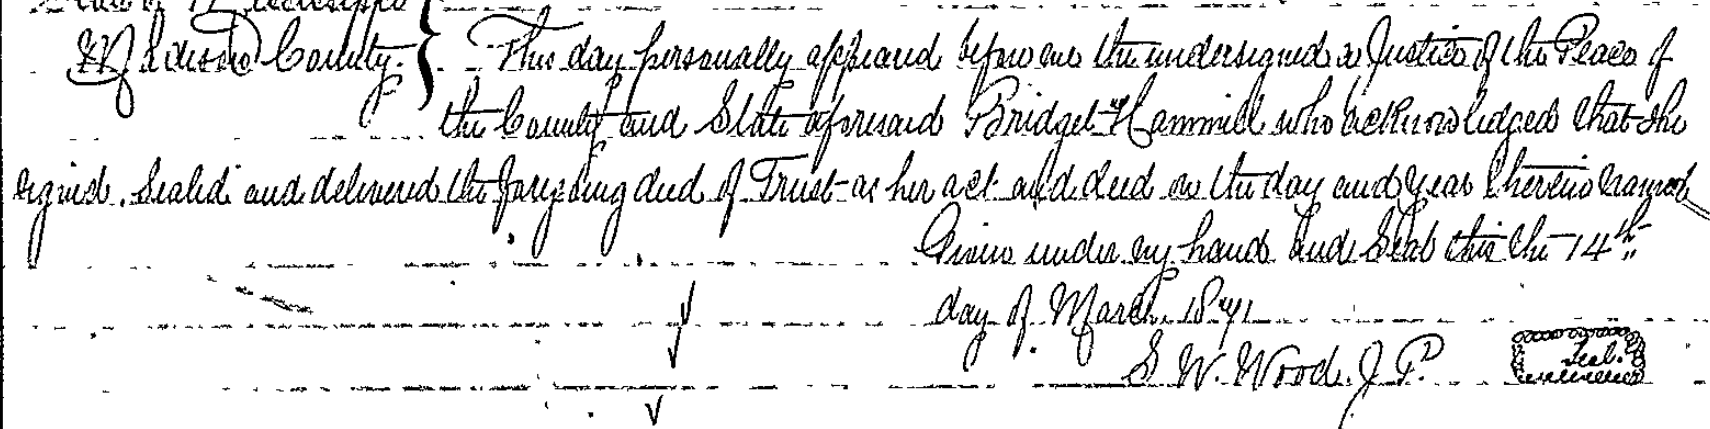 State of Mississippi
Madison County. } This day personally appeared before me the undersigned a Justice of the Peace of
the County and State aforesaid Bridget Hammill who acknowledged that she
signed, Sealed and delivered the foregoing deed of Trust as her act and deed on the day and year therein named
Given under my hand and Seal this the 14th
day of March 1871
S. W. Wood, J. P. Seal.